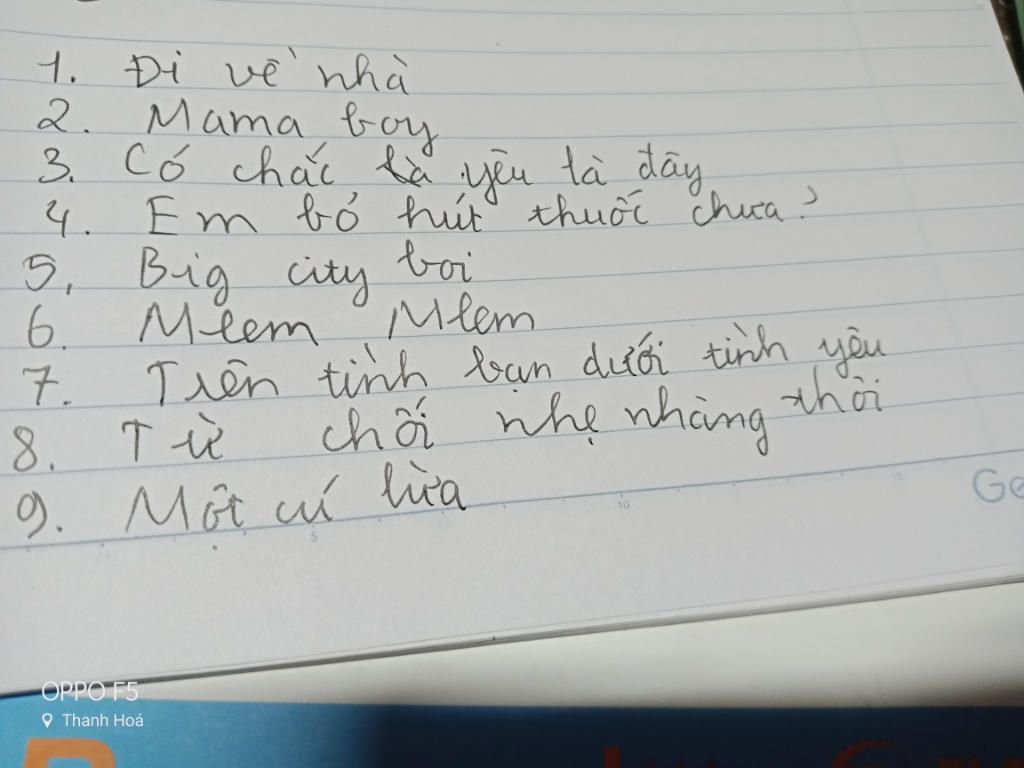 1. Đi về nhà
2. Mama boy
3. Có chắc là yêu là đây
4. Em bỏ hút thuốc chưa?
5, Big city boi
6. Mlem Mlem
7. Trên tình bạn dưới tình yêu
8. Từ chối nhẹ nhàng thôi
9. Một cú lừa
5 10
OPPO F5
Thanh Hoá